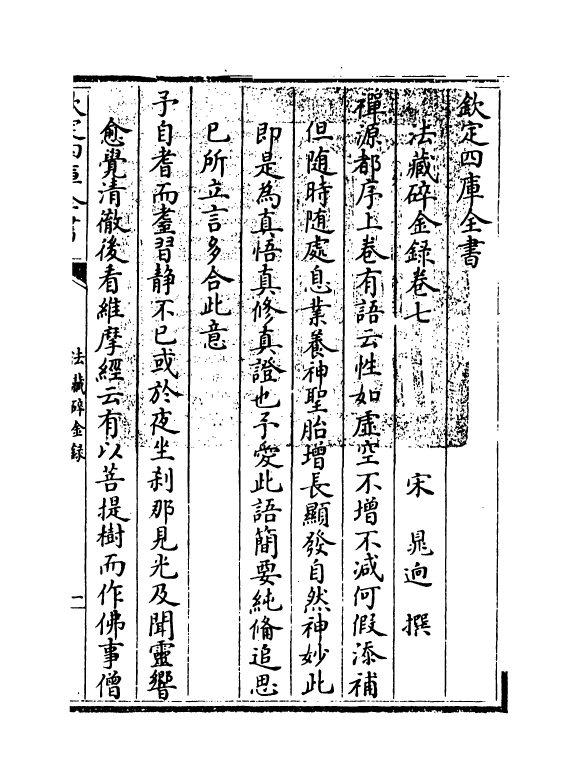 欽定四庫全書
法藏碎金録卷七
宋 晁迥 撰
禪源都序上卷有語云性如虚空不增不減何假添補
但随時随處息業養神聖胎增長顯發自然神妙此
即是為真悟真修真證也予愛此語簡要純備追思
已所立言多合此意
予自耆而耋習静不已或於夜坐刹那見光及聞靈響
愈覺清徹後看維摩經云有以菩提樹而作佛事僧
欽定四庫全書
法藏碎金録